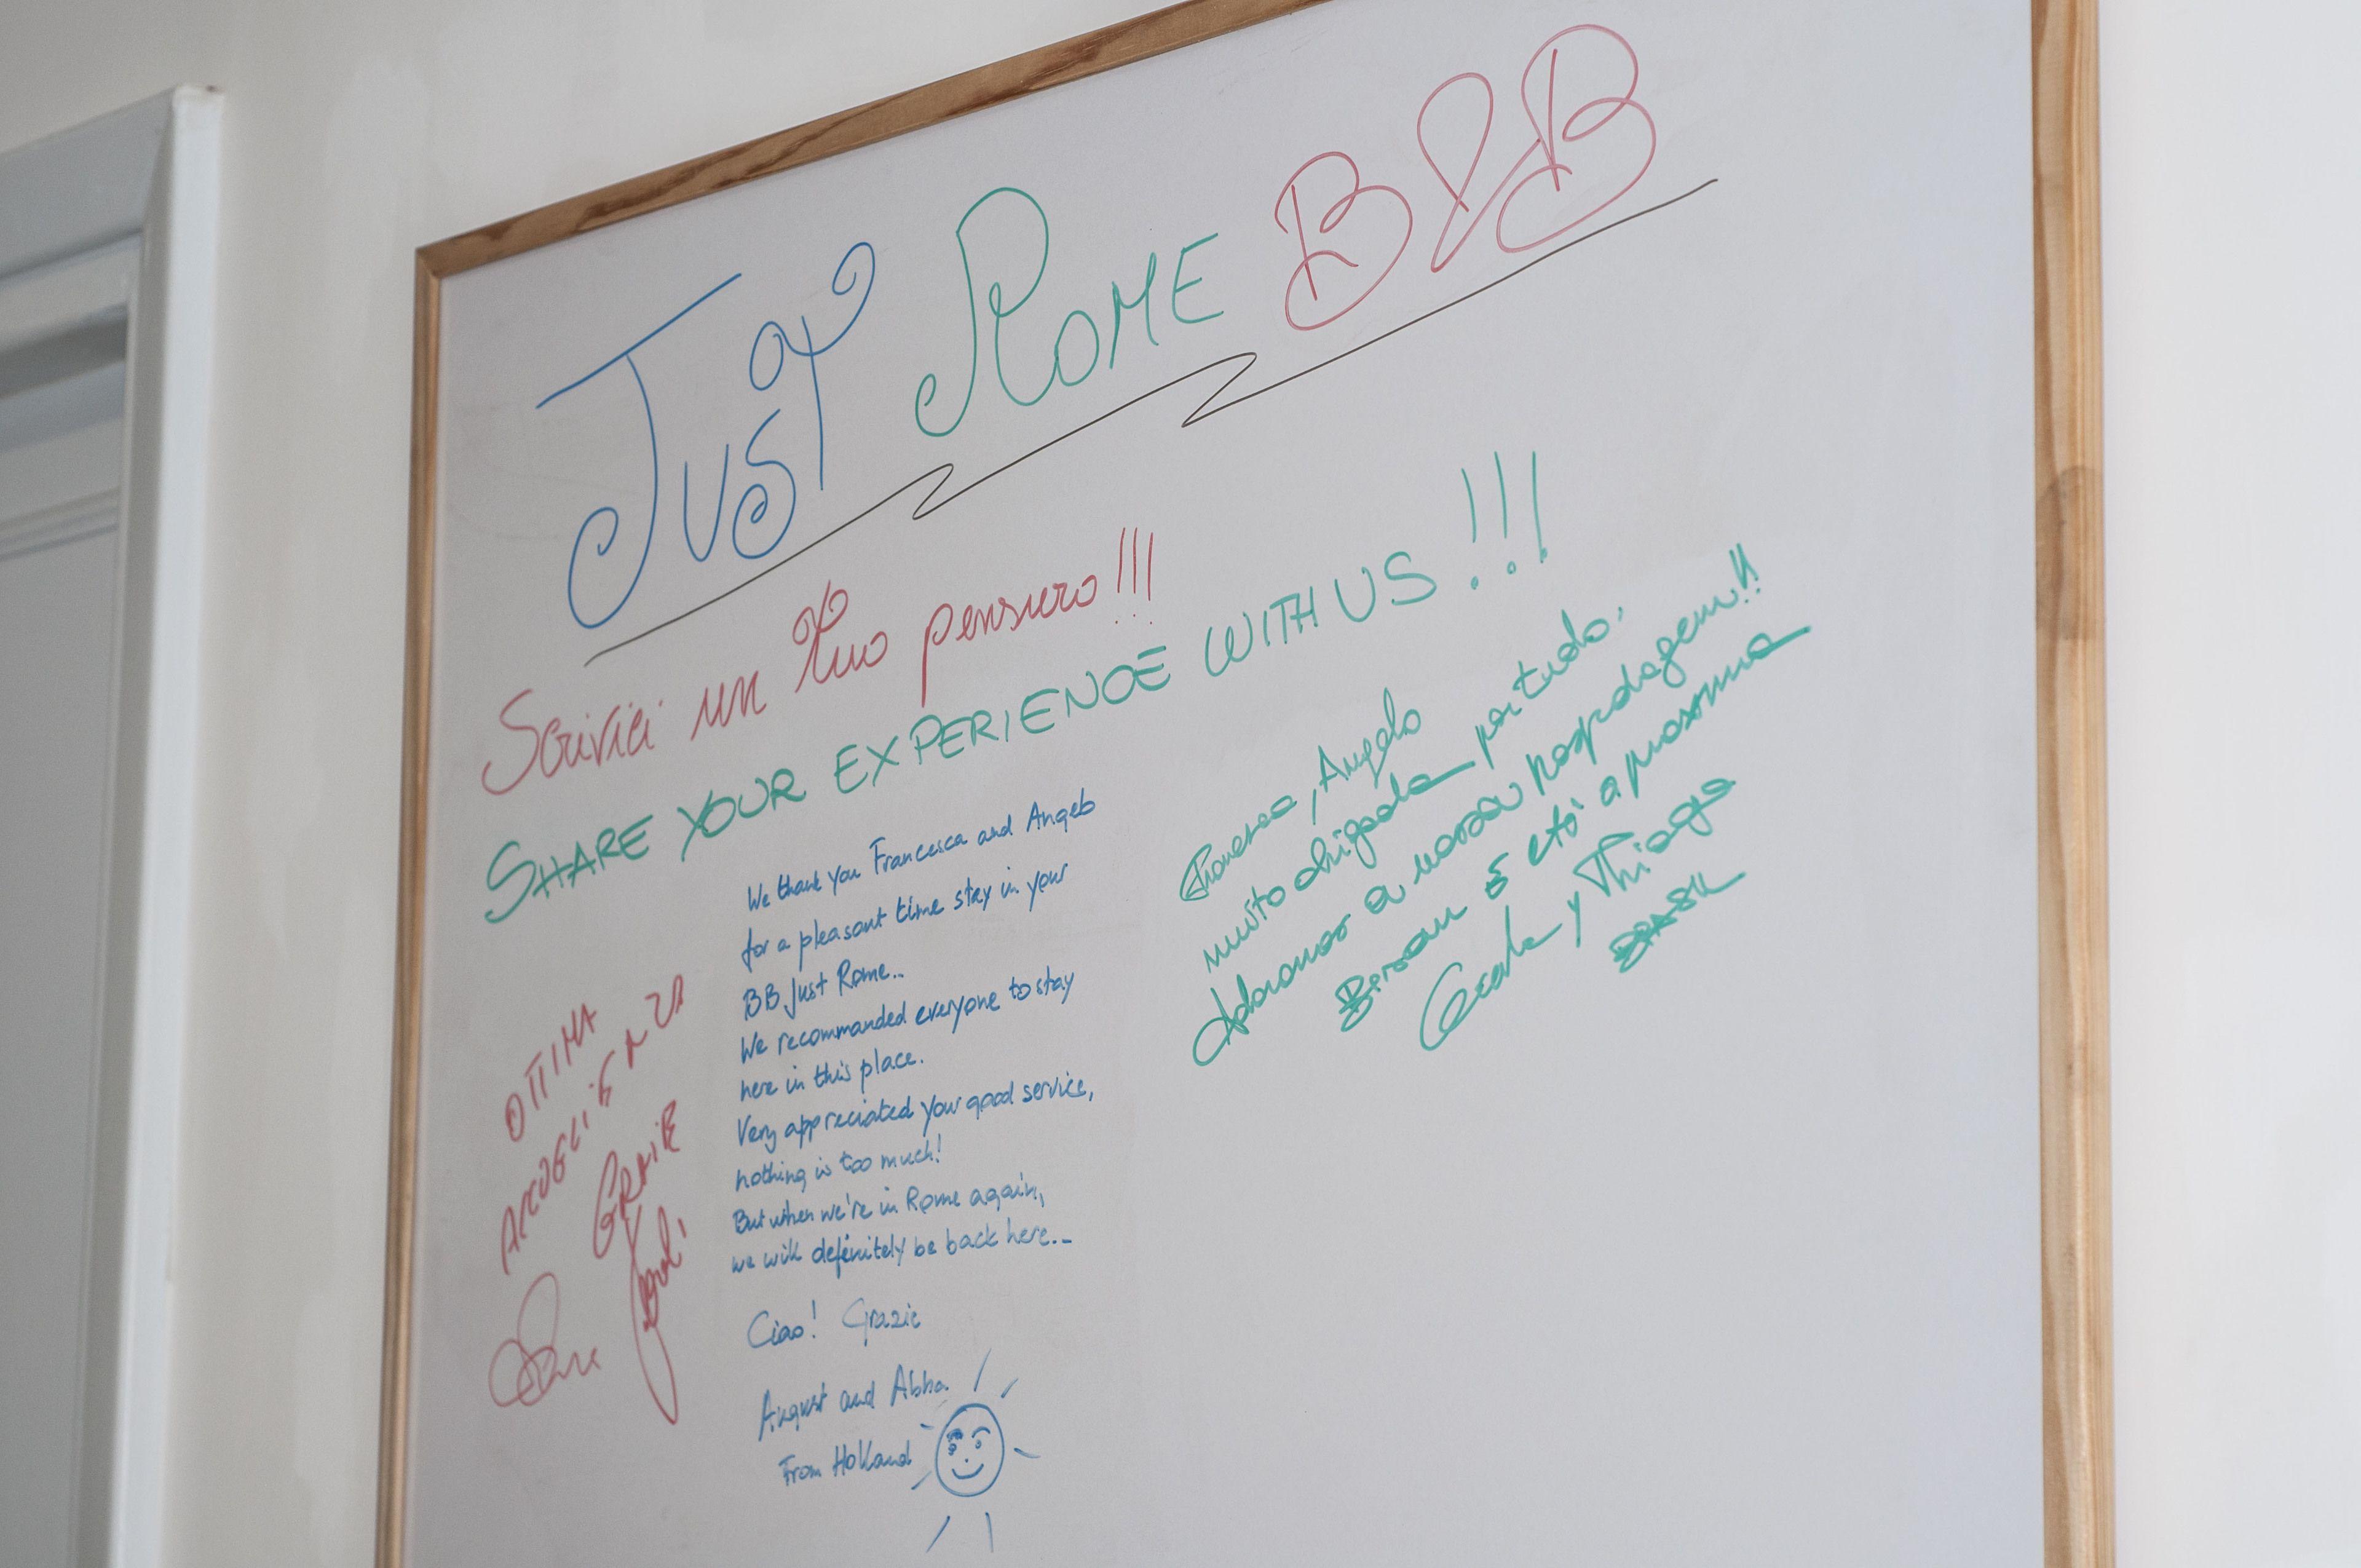 JUST ROME B&B
Scrivici un tuo pensiero!!!
SHARE YOUR EXPERIENCE WITH US!!!
We thank you Francesca and Angelo
for a pleasant time stay in your
BB Just Rome...
We recommanded everyone to stay
here in this place.
Very appreciated your good service,
nothing is too much!
But when we're in Rome again,
we will definitely be back here...
Ciao! Grazie
August and Abha
From Holland
OTTIMA
ACCOGLIENZA
GRAZIE
, Angelo
muito obrigada por tudo,
Adoramos a nossa hospedagem!!
e até a proxima
y Thiago
BRASIL